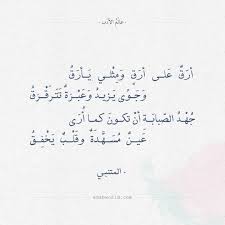 عالم الأدب
أَرَقٌ عَلى أَرَقٍ وَمِثلي يَأرَقُ
وَجَوًى يَزيدُ وَعَبرَةٌ تَتَرَقرَقُ
جُهدُ الصَبابَةِ أَن تَكونَ كَما أُرى
عَينٌ مُسَهَّدَةٌ وَقَلبٌ يَخفِقُ
- المتنبي